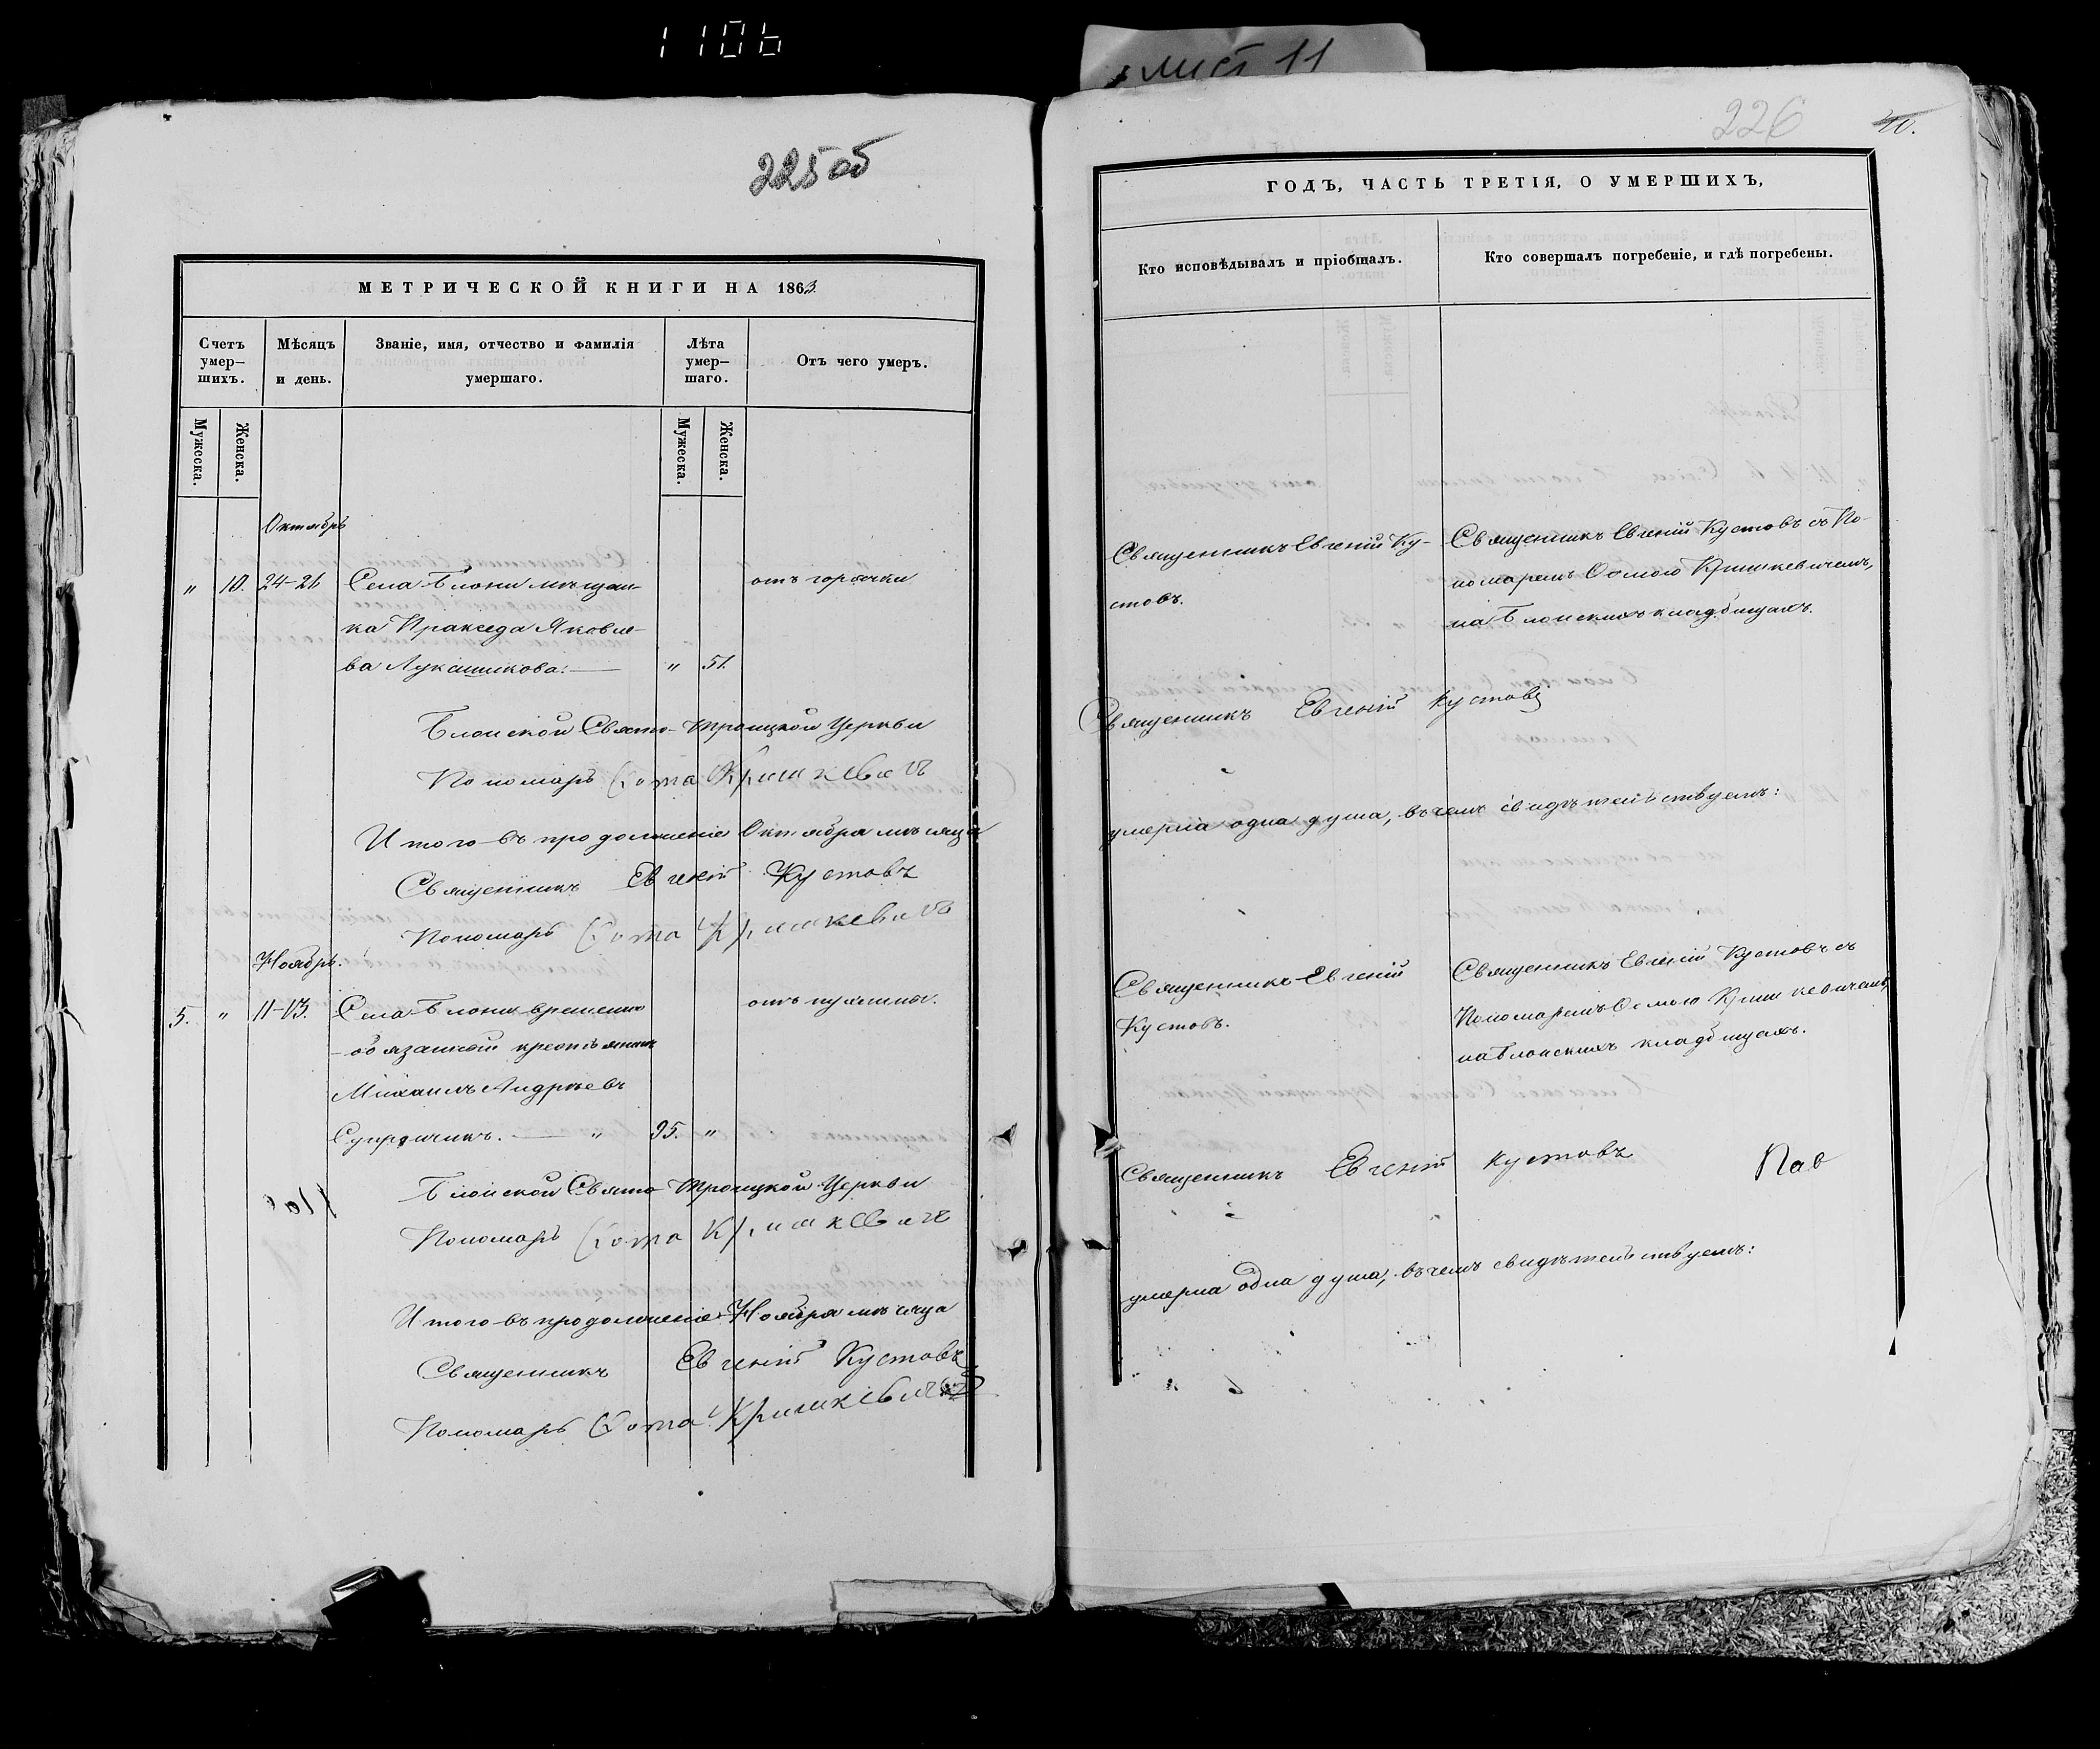 1106
лист 11
225 об
МЕТРИЧЕСКОЙ КНИГИ НА 1863.
Счетъ умер-шихъ.
Мѣсяцъ и день.
Званіе, имя, отчество и фамилія умершаго.
Лѣта умер-шаго.
Отъ чего умеръ.
Мужеска.
Женска.
Мужеска.
Женска.
Октябрь
„ 10. 24-26 Села Блони мѣщан- отъ горячки
ка Пракседа Яковле-
ва Лукашикова. — „ 51.
Блонской Свято-Троицкой Церкви
Пономарь Ѳома Кришкевичъ
Итого въ продолженіе Октября мѣсяца
Священникъ Евгеній Кустовъ
Пономарь Ѳома Кришкевичъ
Ноябрь.
5. „ 11-13. Села Блони временно
-обязанный крестьянинъ
Михаилъ Андреевъ
— „ 95. „
Блонской Свято Троицкой Церкви
Пономарь Ѳома Кришкевичъ
Итого въ продолженіе Ноября мѣсяца
Священникъ Евгеній Кустовъ
Пономарь Ѳома Кришкевичъ
226
ГОДЪ, ЧАСТЬ ТРЕТІЯ, О УМЕРШИХЪ,
Кто исповѣдывалъ и пріобщалъ.
Кто совершалъ погребеніе, и гдѣ погребены.
Священникъ Евгеній Ку-
стовъ.
Священникъ Евгеній Кустовъ съ По-
номаремъ Ѳомою Кришкевичемъ,
на Блонскихъ кладбищахъ.
Священникъ Евгеній Кустовъ
умерла одна душа, въ чемъ свидѣтельствуемъ:
Священникъ Евгеній
Кустовъ.
Священникъ Евгеній Кустовъ съ
Пономаремъ Ѳомою Кришкевичемъ,
на Блонскихъ кладбищахъ.
Священникъ Евгеній Кустовъ
умерла одна душа, въ чемъ свидѣтельствуемъ: